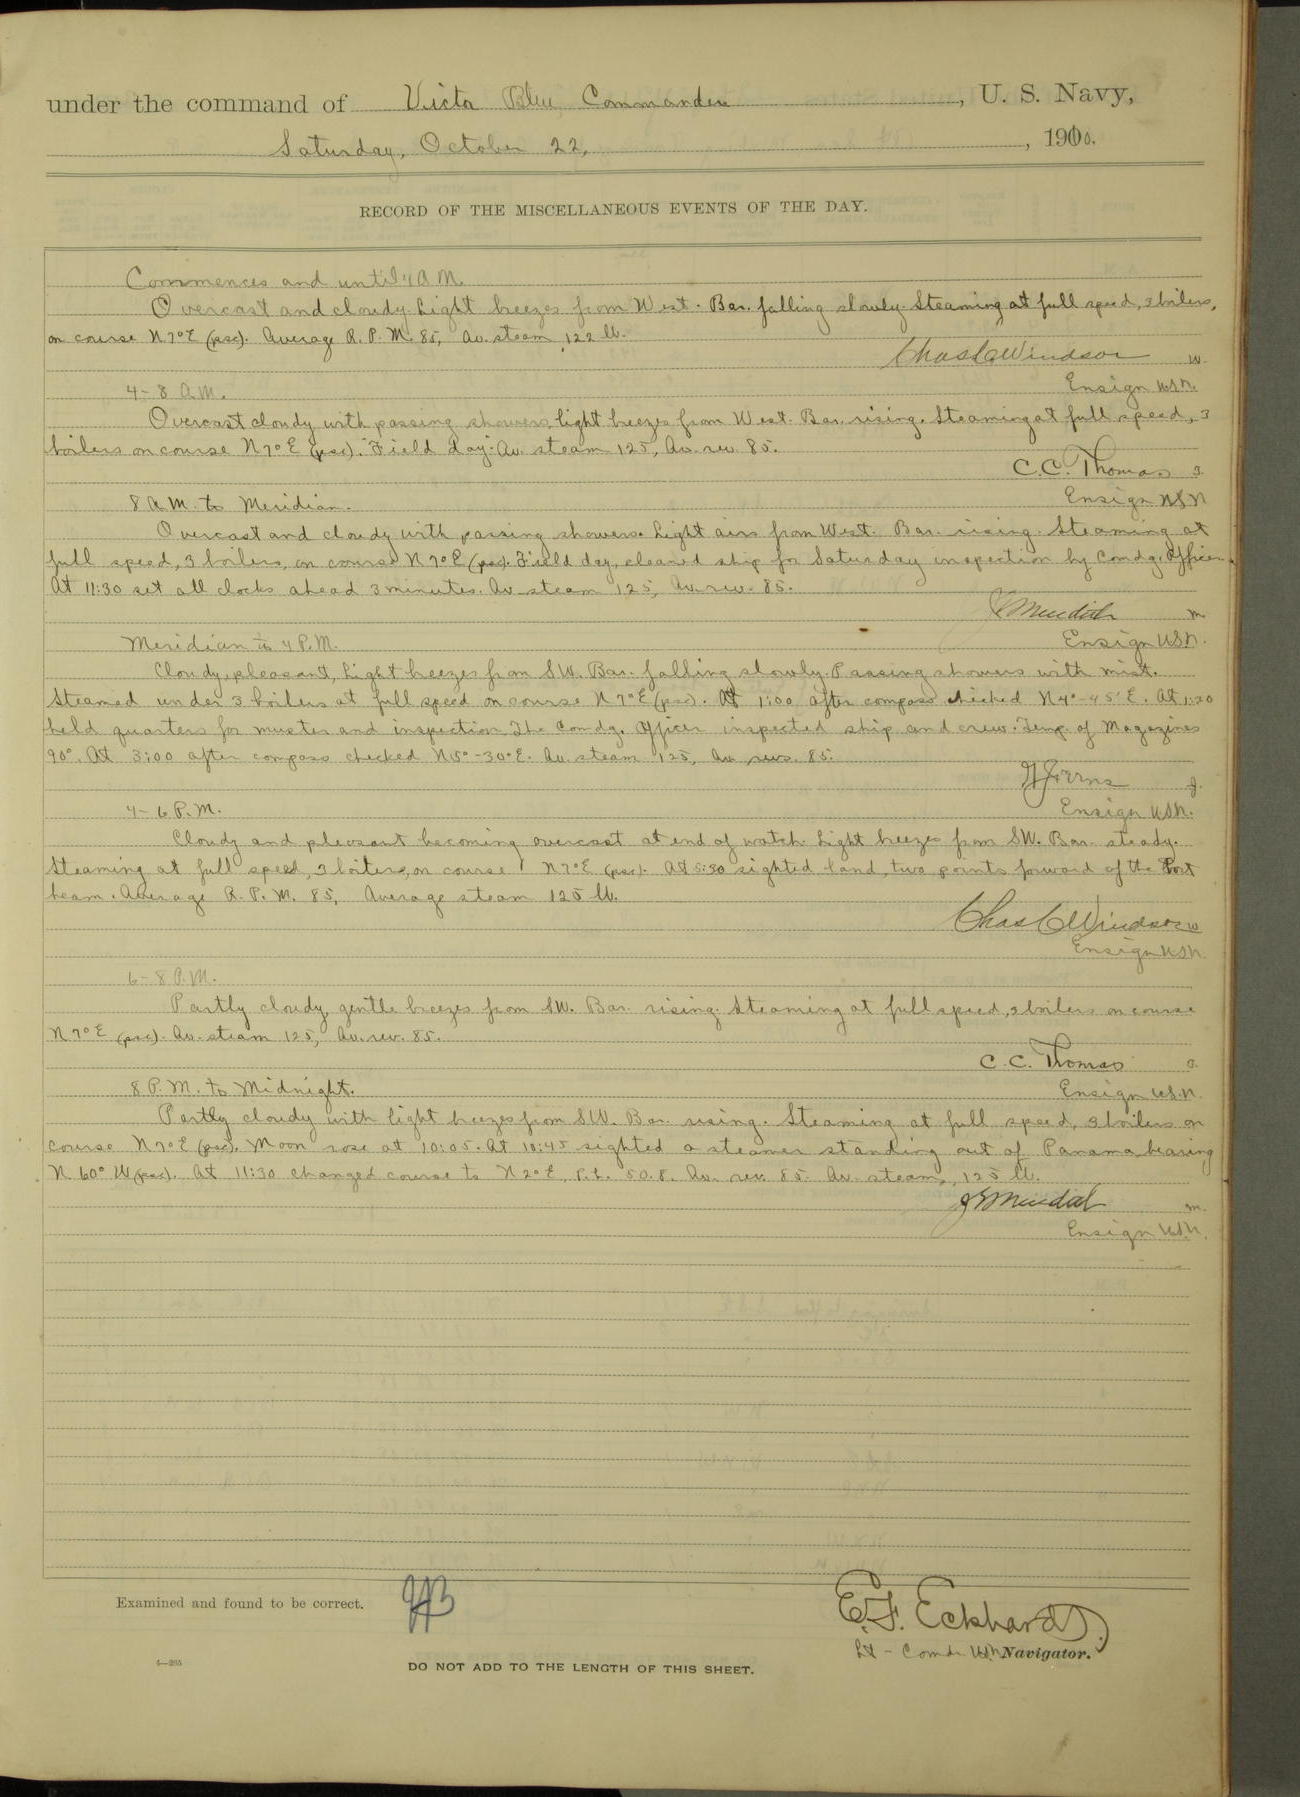 under the command of Victor Blue, Commander, U. S. Navy,
Saturday, October 22, 1910.
RECORD OF THE MISCELLANEOUS EVENTS OF THE DAY.
Commences and until 4 A.M.
Overcast and cloudy. Light breezes from West. Bar. falling slowly. Steaming at full speed, 3 boilers,
on course N 7° E (psc). Average R. P. M. 85, Av. steam, 122 lb.
Chas C Windsor W.
Ensign USN.
4-8 A.M.
Overcast cloudy with passing showers, light breezes from West. Bar. rising. Steaming at full speed, 3
boilers on course N 7° E (psc). "Field day." Av. steam 125, Av. rev. 85.
C. C. Thomas
Ensign USN
8 A.M. to Meridian.
Overcast and cloudy with passing showers. Light airs from West. Bar. rising. Steaming at
full speed, 3 boilers, on course N 7° E (psc). Field day, cleaned ship for Saturday inspection by Comdg. Officer.
At 11:30 set all clocks ahead 3 minutes. Av. steam 125, Av. rev. 85.
m
Ensign USN.
Meridian to 4 P.M.
Cloudy, pleasant, Light breezes from SW. Bar. falling slowly. Passing showers with mist.
Steamed under 3 boilers at full speed on course N 7° E (psc). At 1:00 after compass checked N 4°-45' E. At 1:30
held quarters for muster and inspection. The Comdg. Officer inspected ship and crew. Temp. of Magazines
90°. At 3:00 after compass checked N 5°-30° E. Av. steam 125, Av. revs. 85.
Ensign USN.
4-6 P.M.
Cloudy and pleasant becoming overcast at end of watch. Light breezes from SW. Bar. steady.
Steaming at full speed, 3 boilers, on course N 7° E (psc). At 5:30 sighted land, two points forward of the Port
beam. Average R. P. M. 85, Average steam 125 lb.
Chas C Windsor W
Ensign USN.
6-8 P.M.
Partly cloudy, gentle breezes from SW. Bar. rising. Steaming at full speed, 3 boilers on course
N 7° E (psc). Av. steam 125, Av. rev. 85.
C. C. Thomas
Ensign U.S.N.
8 P.M. to Midnight.
Partly cloudy with light breezes from SW. Bar. rising. Steaming at full speed, 3 boilers on
course N 7° E (psc). Moon rose at 10:05. At 10:45 sighted a steamer standing out of Panama, bearing
N 60° W (psc). At 11:30 changed course to N 2° E, P.L. 50.8. Av. rev. 85. Av. steam, 125 lb.
m.
Ensign U.S.N.
Examined and found to be correct.
E. F. Eckhardt
Lt - Comdr USN Navigator.
DO NOT ADD TO THE LENGTH OF THIS SHEET.